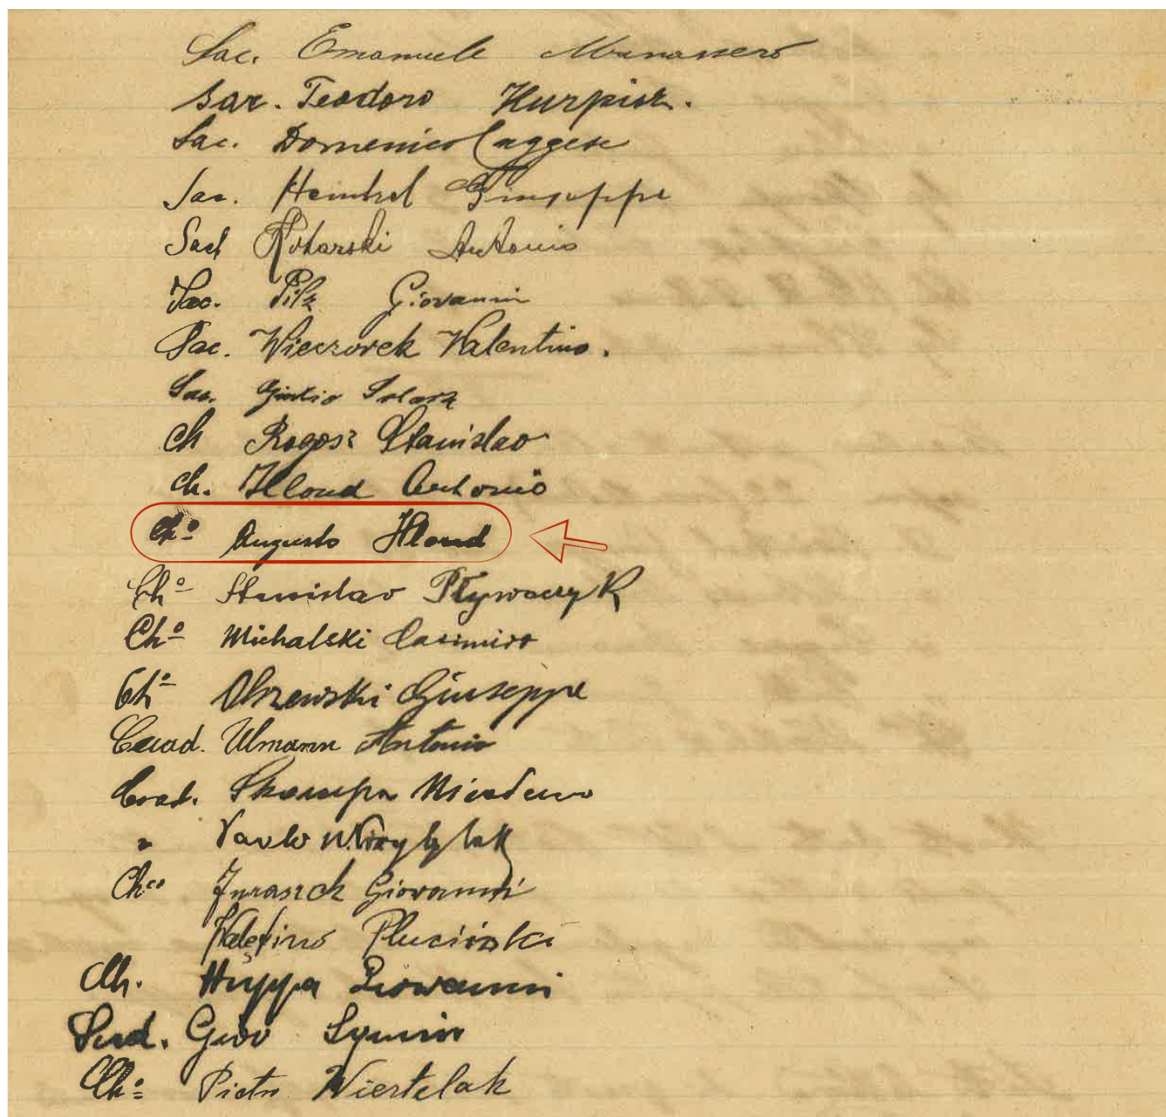 Sac. Emanuele Manassero
Sac. Teodoro Kurpisz.
Sac. Domenico Caggese
Sac. Hembel Giuseppe
Sac Kotarski Antonio
Sac. Pilz Giovanni
Sac. Wieczorek Valentino.
Sac. Giulio
Ch Rogosz Stanislao
Ch. Hlond Antonio
Ch.º Augusto Hlond
Ch.º Stanislao Pływaczyk
Ch.º Michalski Casimiro
Ch.º Olszewski Giuseppe
Coad. Ulmann Antonio
Coad. Skowera
" Paulo
Ch.co Juraszek Giovanni
Valentino Pluciński
Ch. Huppa Giovanni
Giov
Ch.º Pietro Wiertelak